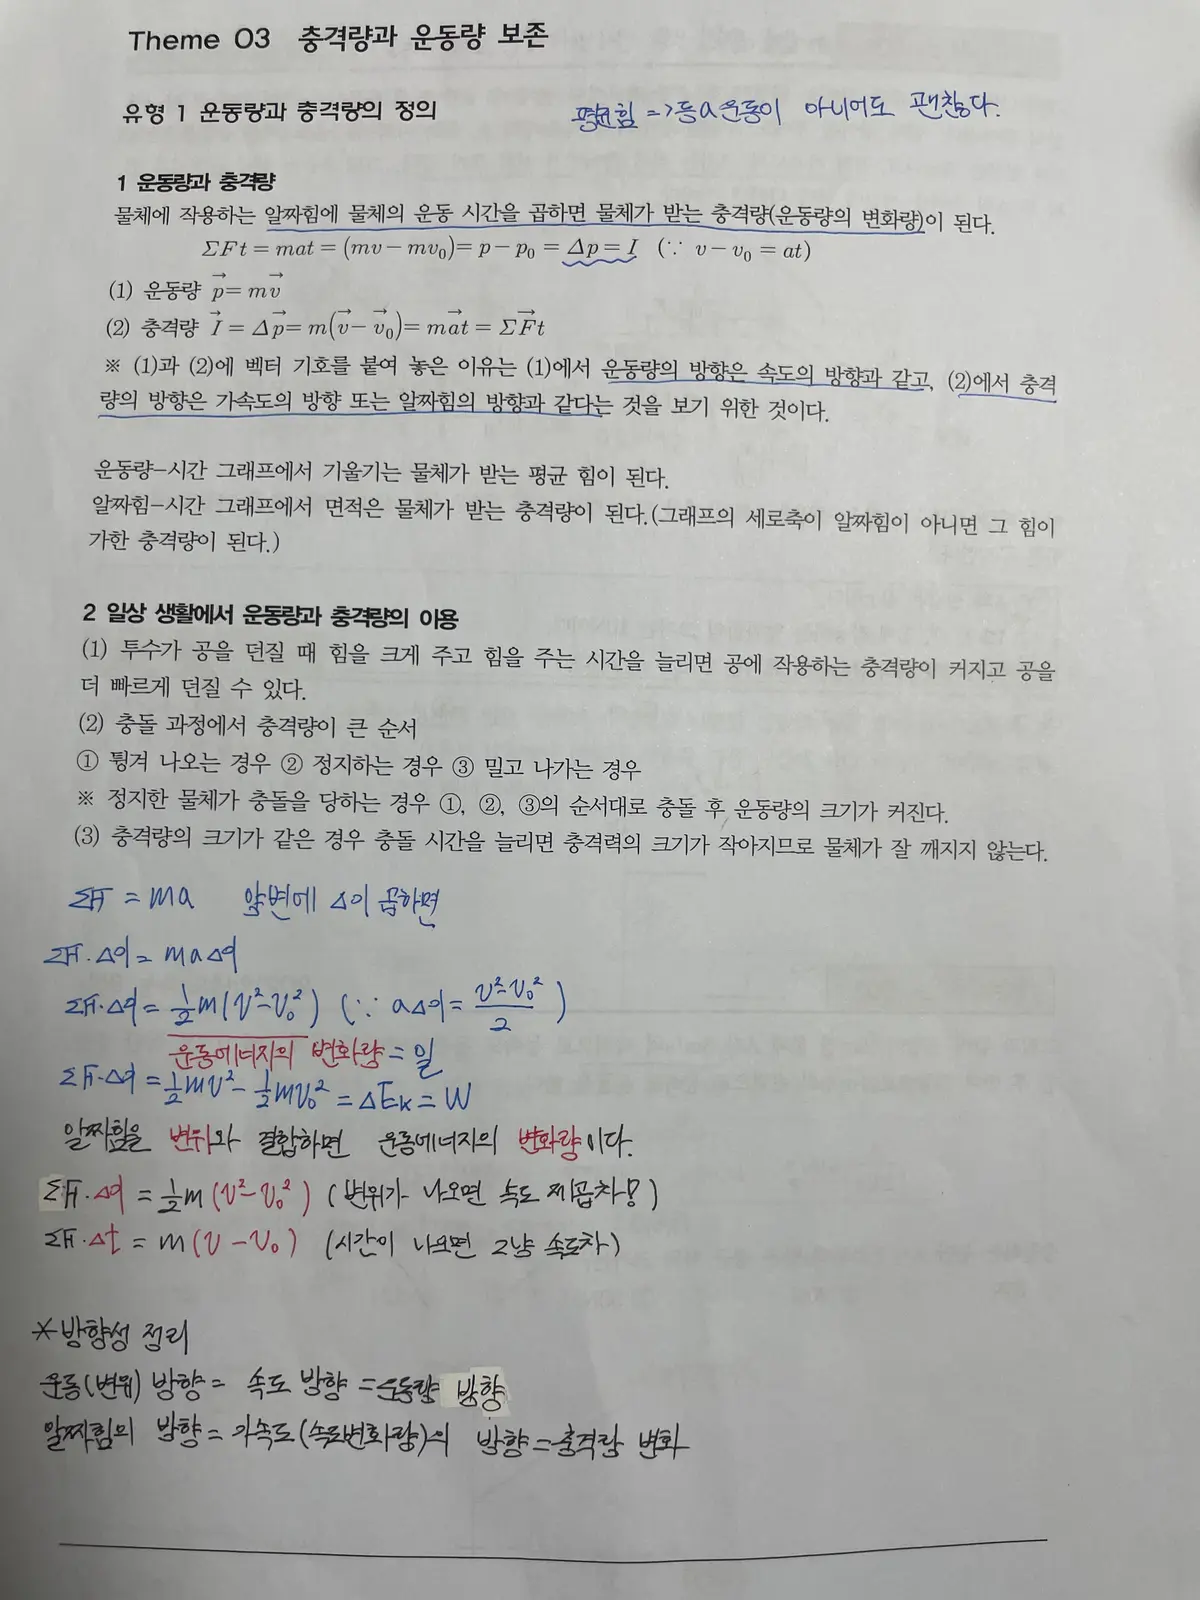 Theme 03 충격량과 운동량 보존
유형 1 운동량과 충격량의 정의
평균힘 => 등a운동이 아니어도 괜찮다.
1 운동량과 충격량
물체에 작용하는 알짜힘에 물체의 운동 시간을 곱하면 물체가 받는 충격량(운동량의 변화량)이 된다.
ΣFt = mat = (mv − mv₀) = p − p₀ = Δp = I (∵ v − v₀ = at)
(1) 운동량 p⃗ = mv⃗
(2) 충격량 I⃗ = Δp⃗ = m(v⃗ − v⃗₀) = ma⃗t = ΣF⃗t
※ (1)과 (2)에 벡터 기호를 붙여 놓은 이유는 (1)에서 운동량의 방향은 속도의 방향과 같고, (2)에서 충격
량의 방향은 가속도의 방향 또는 알짜힘의 방향과 같다는 것을 보기 위한 것이다.
운동량−시간 그래프에서 기울기는 물체가 받는 평균 힘이 된다.
알짜힘−시간 그래프에서 면적은 물체가 받는 충격량이 된다.(그래프의 세로축이 알짜힘이 아니면 그 힘이
가한 충격량이 된다.)
2 일상 생활에서 운동량과 충격량의 이용
(1) 투수가 공을 던질 때 힘을 크게 주고 힘을 주는 시간을 늘리면 공에 작용하는 충격량이 커지고 공을
더 빠르게 던질 수 있다.
(2) 충돌 과정에서 충격량이 큰 순서
① 튕겨 나오는 경우 ② 정지하는 경우 ③ 밀고 나가는 경우
※ 정지한 물체가 충돌을 당하는 경우 ①, ②, ③의 순서대로 충돌 후 운동량의 크기가 커진다.
(3) 충격량의 크기가 같은 경우 충돌 시간을 늘리면 충격력의 크기가 작아지므로 물체가 잘 깨지지 않는다.
ΣF = ma 양변에 Δ이 곱하면
ΣF·Δ이 = maΔ이
ΣF·Δ이 = ½m(v²−v₀²) (∵ aΔ이 = (v²−v₀²)/2)
운동에너지의 변화량 = 일
ΣF·Δ이 = ½mv² − ½mv₀² = ΔEk = W
알짜힘을 변위와 결합하면 운동에너지의 변화량이다.
ΣF·Δ이 = ½m(v²−v₀²) (변위가 나오면 속도 제곱차!)
ΣF·Δt = m(v − v₀) (시간이 나오면 그냥 속도차)
*방향성 정리
운동(변위) 방향 = 속도 방향 = 운동량 방향
알짜힘의 방향 = 가속도(속도변화량)의 방향 = 충격량 변화